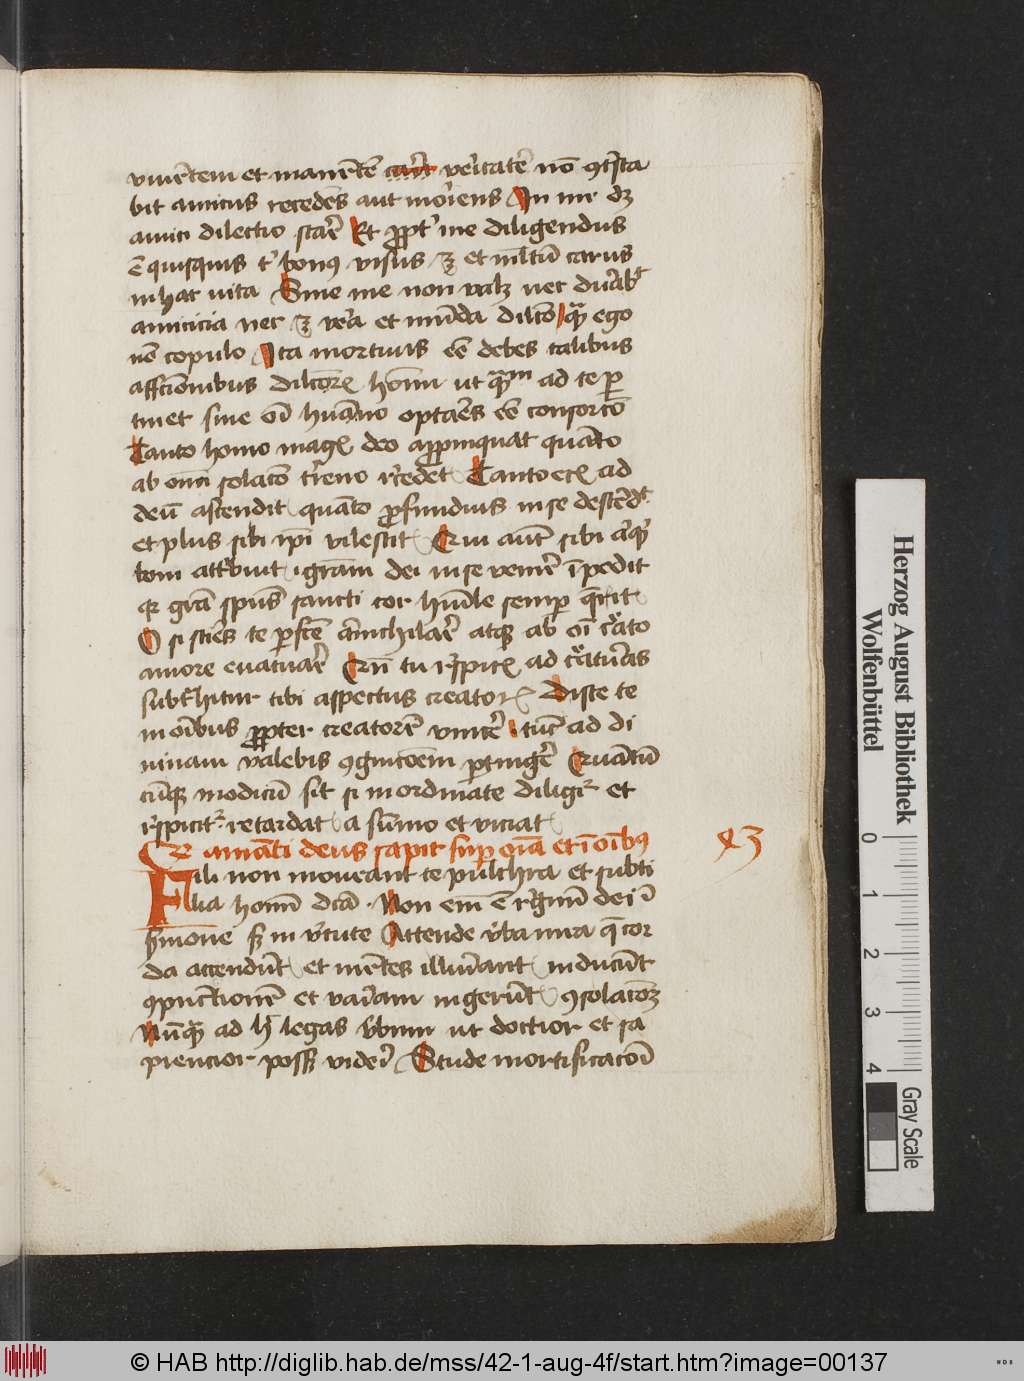 viuentem et manentem veritatem non contrista
bit amicus recedens aut moriens In me debet
amici dilectio stare Et propter me diligendus
est quisquis tibi bonus visus est et multum carus
in hac vita Sine me non valet nec durabit
amicicia nec est vera et munda dilectio quam ego
non copulo Ita mortuus esse debes talibus
affectionibus dilectorum hominum ut quantum ad te per
tinet sine omni humano optares esse consortio
Tanto homo magis deo appropinquat quanto
ab omni solacio terreno recedit Tanto eciam ad
deum ascendit quanto profundius in se descendit
et plus sibi ipsi vilescit Qui autem sibi aliquid
boni attribuit gratiam dei in se venire impedit
quia gratia spiritus sancti cor humile semper querit
O si scires te perfecte annichilare atque ab omni creato
amore evacuare Cum tu respicis ad creaturas
subtrahitur tibi aspectus creatoris Disce te
in omnibus propter creatorem vincere tunc ad di
vinam valebis cognicionem pertingere Quantum
cumque modicum sit si inordinate diligitur et
respicitur retardat a summo et viciat
amanti deus sapit super omnia et in omnibus
Fili non moveant te pulchra et subti
lia hominum dicta Non enim est regnum dei in
sermone sed in virtute Attende verba mea que cor
da accendunt et mentes illuminant inducunt
compunctionem et variam ingerunt consolacionem
Nunquam ad hoc legas verbum ut doctior et sa
piencior possis videri Stude mortificacioni
Herzog August Bibliothek
Wolfenbüttel
0 1 2 3 4
Gray Scale
© HAB http://diglib.hab.de/mss/42-1-aug-4f/start.htm?image=00137